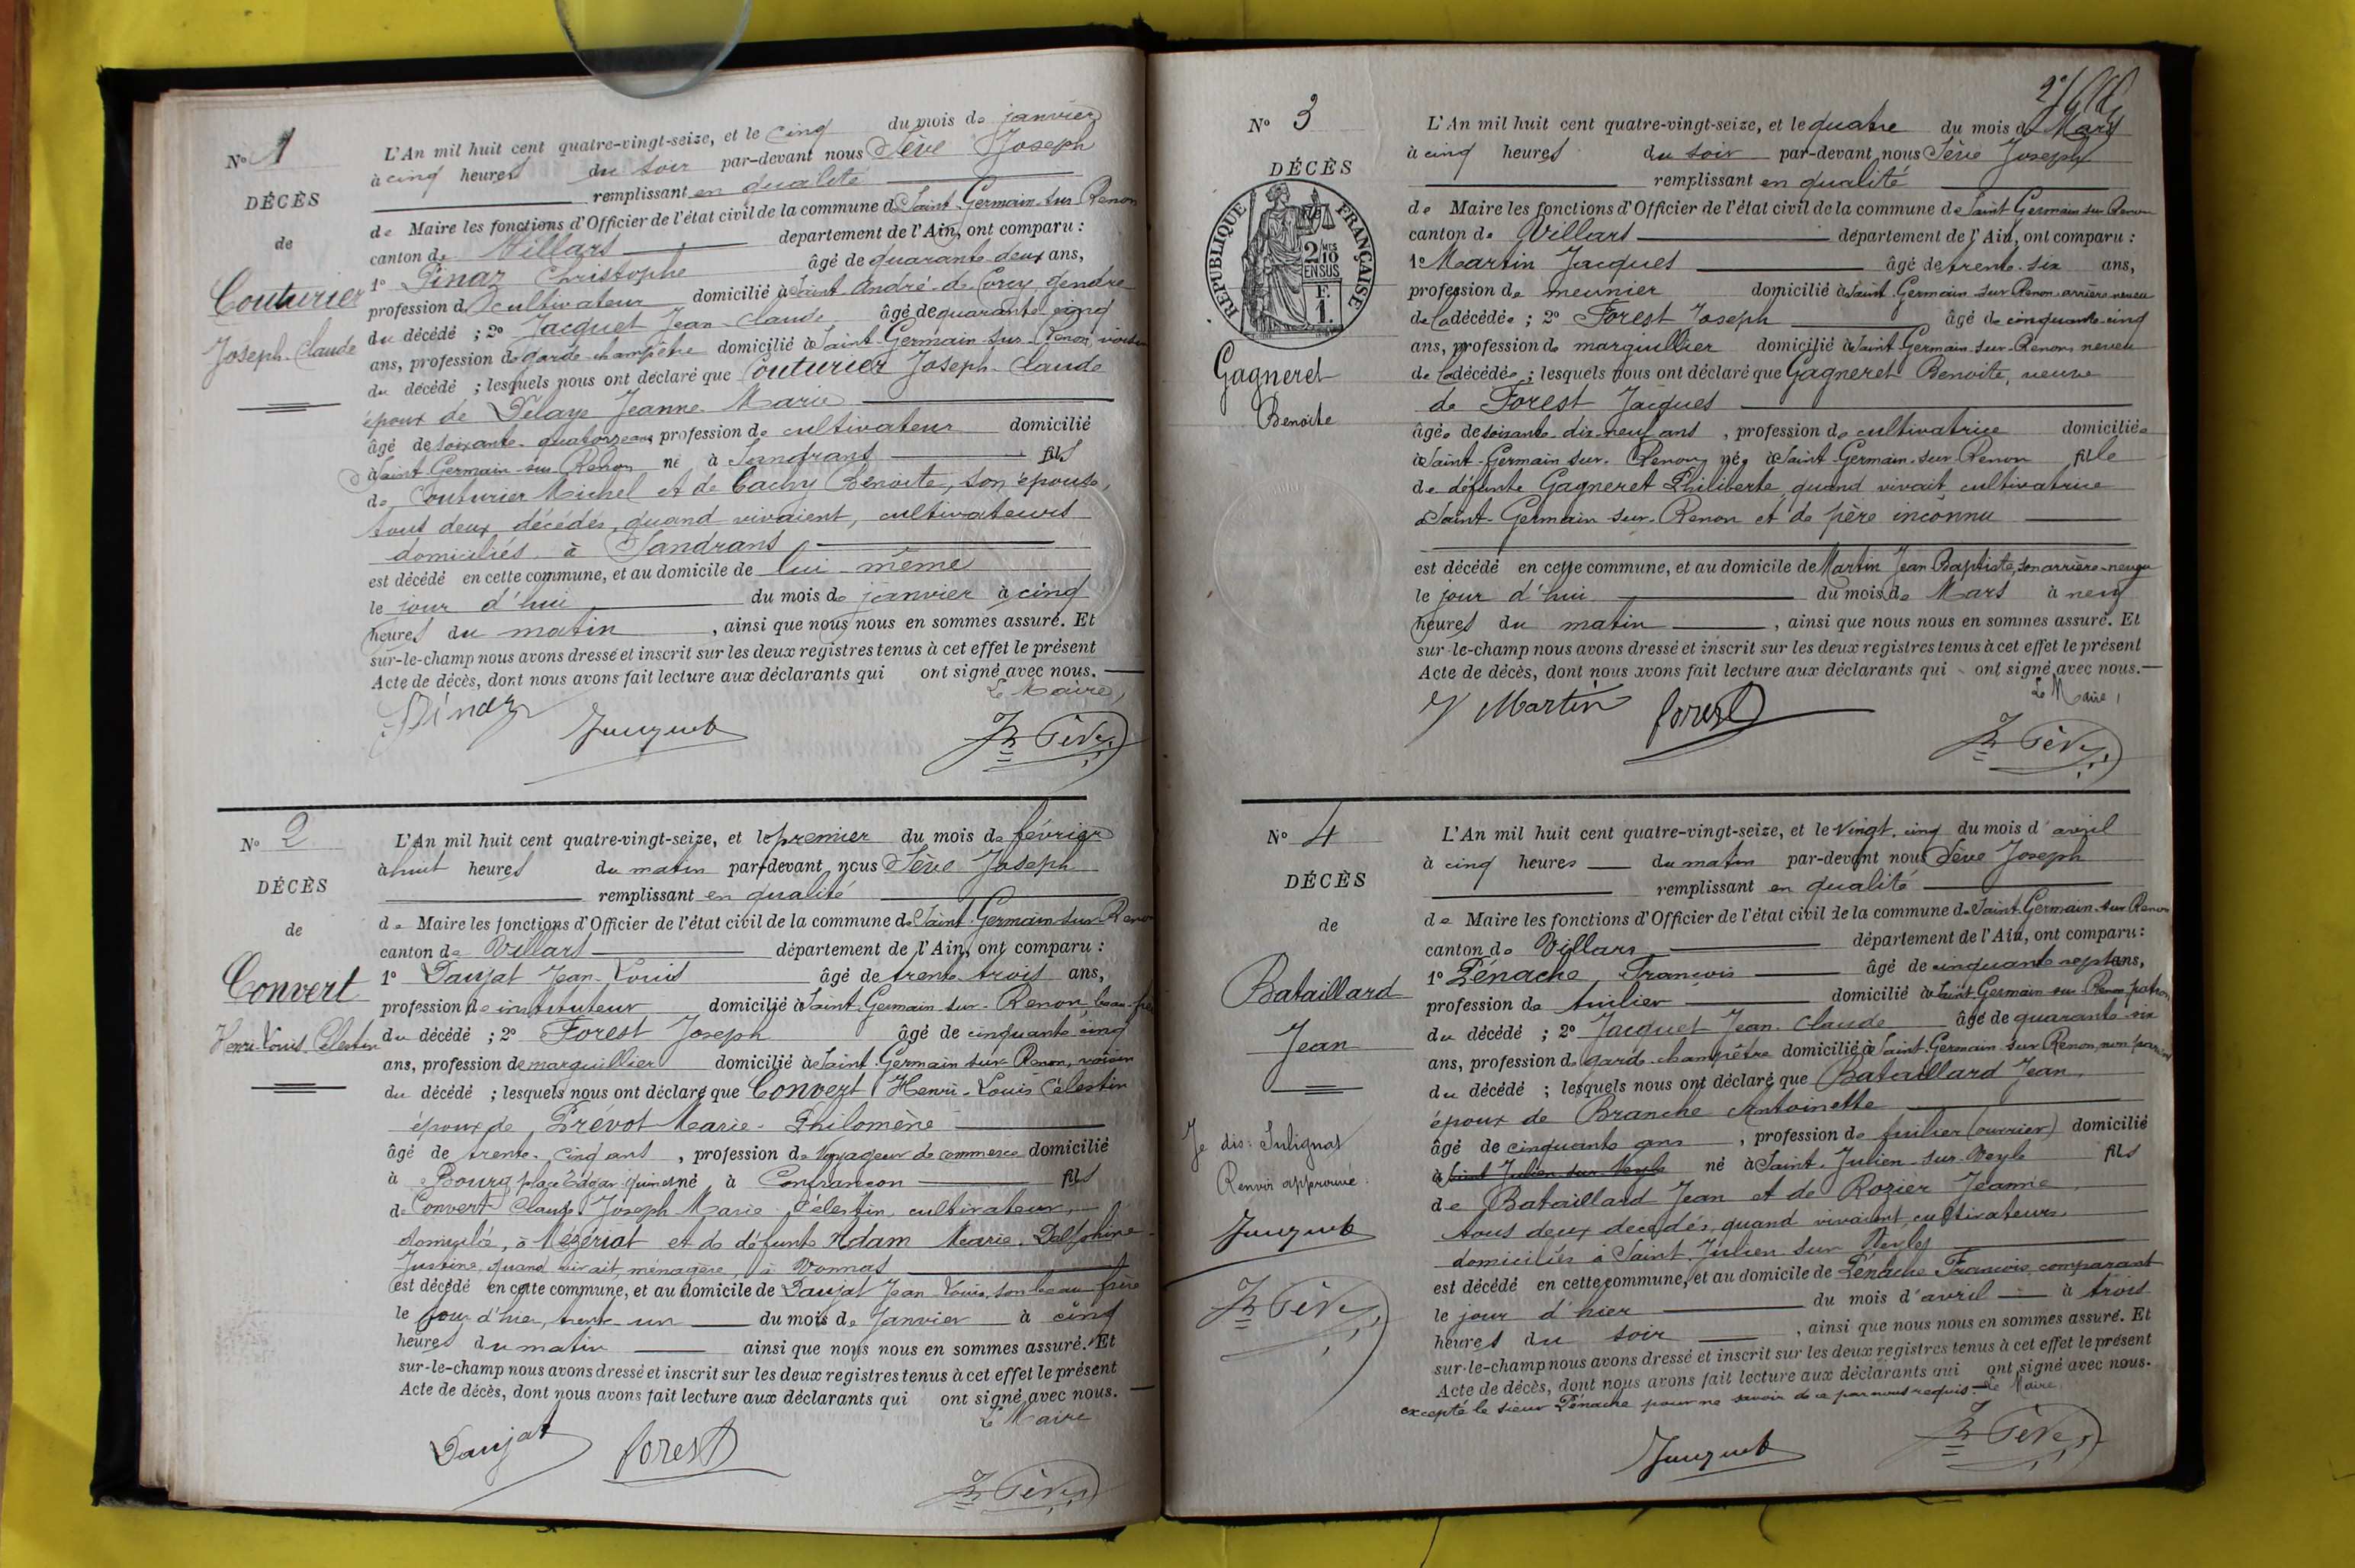 No 1
DÉCÈS
de
Couturier
Joseph-Claude
L'An mil huit cent quatre-vingt-seize, et le cinq du mois de janvier
à cinq heures du soir par-devant nous Sève Joseph
remplissant en qualité
de Maire les fonctions d'Officier de l'état civil de la commune de Saint-Germain-sur-Renon
canton de Villars département de l'Ain, ont comparu :
1o Pinaz Christophe âgé de quarante-deux ans,
profession de cultivateur domicilié à Saint-André-de-Corcy gendre
du décédé ; 2o Jacquet Jean-Claude âgé de quarante-cinq
ans, profession de garde-champêtre domicilié à Saint-Germain-sur-Renon, voisin
du décédé ; lesquels nous ont déclaré que Couturier Joseph-Claude
époux de Délaye Jeanne-Marie
âgé de soixante-quatorze ans profession de cultivateur domicilié
à Saint-Germain-sur-Renon né à Sandrans fils
de Couturier Michel et de Benoite, son épouse,
tous deux décédés, quand vivaient, cultivateurs
domiciliés à Sandrans
est décédé en cette commune, et au domicile de lui-même
le jour d'hui du mois de janvier à cinq
heures du matin , ainsi que nous nous en sommes assuré. Et
sur-le-champ nous avons dressé et inscrit sur les deux registres tenus à cet effet le présent
Acte de décès, dont nous avons fait lecture aux déclarants qui ont signé avec nous.
Le Maire,
Pinaz Jacquet Jh Sève
No 2
DÉCÈS
de
Convert
Henri-Louis Célestin
L'An mil huit cent quatre-vingt-seize, et le premier du mois de février
à huit heures du matin par-devant nous Sève Joseph
remplissant en qualité
de Maire les fonctions d'Officier de l'état civil de la commune de Saint-Germain-sur-Renon
canton de Villars département de l'Ain, ont comparu :
1o Daujat Jean-Louis âgé de trente-trois ans,
profession de instituteur domicilié à Saint-Germain-sur-Renon, beau-frère
du décédé ; 2o Forest Joseph âgé de cinquante-cinq
ans, profession de marguillier domicilié à Saint-Germain-sur-Renon, voisin
du décédé ; lesquels nous ont déclaré que Convert Henri-Louis Célestin
époux de Prévot Marie-Philomène
âgé de trente-cinq ans , profession de voyageur de commerce domicilié
à Bourg place Edgar-Quinet né à Confrançon fils
de Convert Claude Joseph Marie Célestin, cultivateur,
domicilié, à Mézériat et de défunte Adam Marie-Delphine-
Justine, quand vivait, ménagère, à Vonnas
est décédé en cette commune, et au domicile de Daujat Jean-Louis, son beau-frère
le jour d'hier, trente-un du mois de Janvier à cinq
heures du matin ainsi que nous nous en sommes assuré. Et
sur-le-champ nous avons dressé et inscrit sur les deux registres tenus à cet effet le présent
Acte de décès, dont nous avons fait lecture aux déclarants qui ont signé avec nous.
Le Maire
Daujat forest Jh Sève
No 3
DÉCÈS
de
RÉPUBLIQUE FRANÇAISE
2/10
EN SUS
F.
1.
Gagneret
Benoîte
L'An mil huit cent quatre-vingt-seize, et le quatre du mois de Mars
à cinq heures du soir par-devant nous Sève Joseph
remplissant en qualité
de Maire les fonctions d'Officier de l'état civil de la commune de Saint-Germain-sur-Renon
canton de Villars département de l'Ain, ont comparu :
1o Martin Jacques âgé de trente-six ans,
profession de meunier domicilié à Saint-Germain-sur-Renon, arrière neveu
de la décédée ; 2o Forest Joseph âgé de cinquante-cinq
ans, profession de marguillier domicilié à Saint-Germain-sur-Renon, neveu
de la décédée ; lesquels nous ont déclaré que Gagneret Benoite, veuve
de Forest Jacques
âgée de soixante-dix-neuf ans , profession de cultivatrice domiciliée
à Saint-Germain-sur-Renon, née à Saint-Germain-sur-Renon fille
de défunte Gagneret Philiberte, quand vivait, cultivatrice
à Saint-Germain-sur-Renon et de père inconnu
est décédé en cette commune, et au domicile de Martin Jean Baptiste, son arrière-neveu
le jour d'hui du mois de Mars à neuf
heures du matin , ainsi que nous nous en sommes assuré. Et
sur-le-champ nous avons dressé et inscrit sur les deux registres tenus à cet effet le présent
Acte de décès, dont nous avons fait lecture aux déclarants qui ont signé avec nous.
Le Maire,
J Martin forest Jh Sève
No 4
DÉCÈS
de
Bataillard
Jean
Je dis : Sulignat
Renvoi approuvé.
Jacquet
Jh Sève
L'An mil huit cent quatre-vingt-seize, et le vingt-cinq du mois d'avril
à cinq heures du matin par-devant nous Sève Joseph
remplissant en qualité
de Maire les fonctions d'Officier de l'état civil de la commune de Saint-Germain-sur-Renon
canton de Villars département de l'Ain, ont comparu :
1o Pénache François âgé de cinquante-sept ans,
profession de tuilier domicilié à Saint-Germain-sur-Renon patron
du décédé ; 2o Jacquet Jean-Claude âgé de quarante-six
ans, profession de garde-champêtre domicilié à Saint-Germain-sur-Renon, non parent
du décédé ; lesquels nous ont déclaré que Bataillard Jean,
époux de Branche Antoinette
âgé de cinquante ans , profession de tuilier (ouvrier) domicilié
à Saint-Julien-sur-Veyle né à Saint-Julien-sur-Veyle fils
de Bataillard Jean et de Rozier Jeanne
tous deux décédés, quand vivaient, cultivateurs
domiciliés à Saint-Julien-sur-Veyle
est décédé en cette commune, et au domicile de Pénache François comparant
le jour d'hier du mois d'avril à trois
heures du soir , ainsi que nous nous en sommes assuré. Et
sur-le-champ nous avons dressé et inscrit sur les deux registres tenus à cet effet le présent
Acte de décès, dont nous avons fait lecture aux déclarants qui ont signé avec nous.
excepté le sieur Pénache pour ne savoir de ce par nous requis. Le Maire
Jacquet Jh Sève